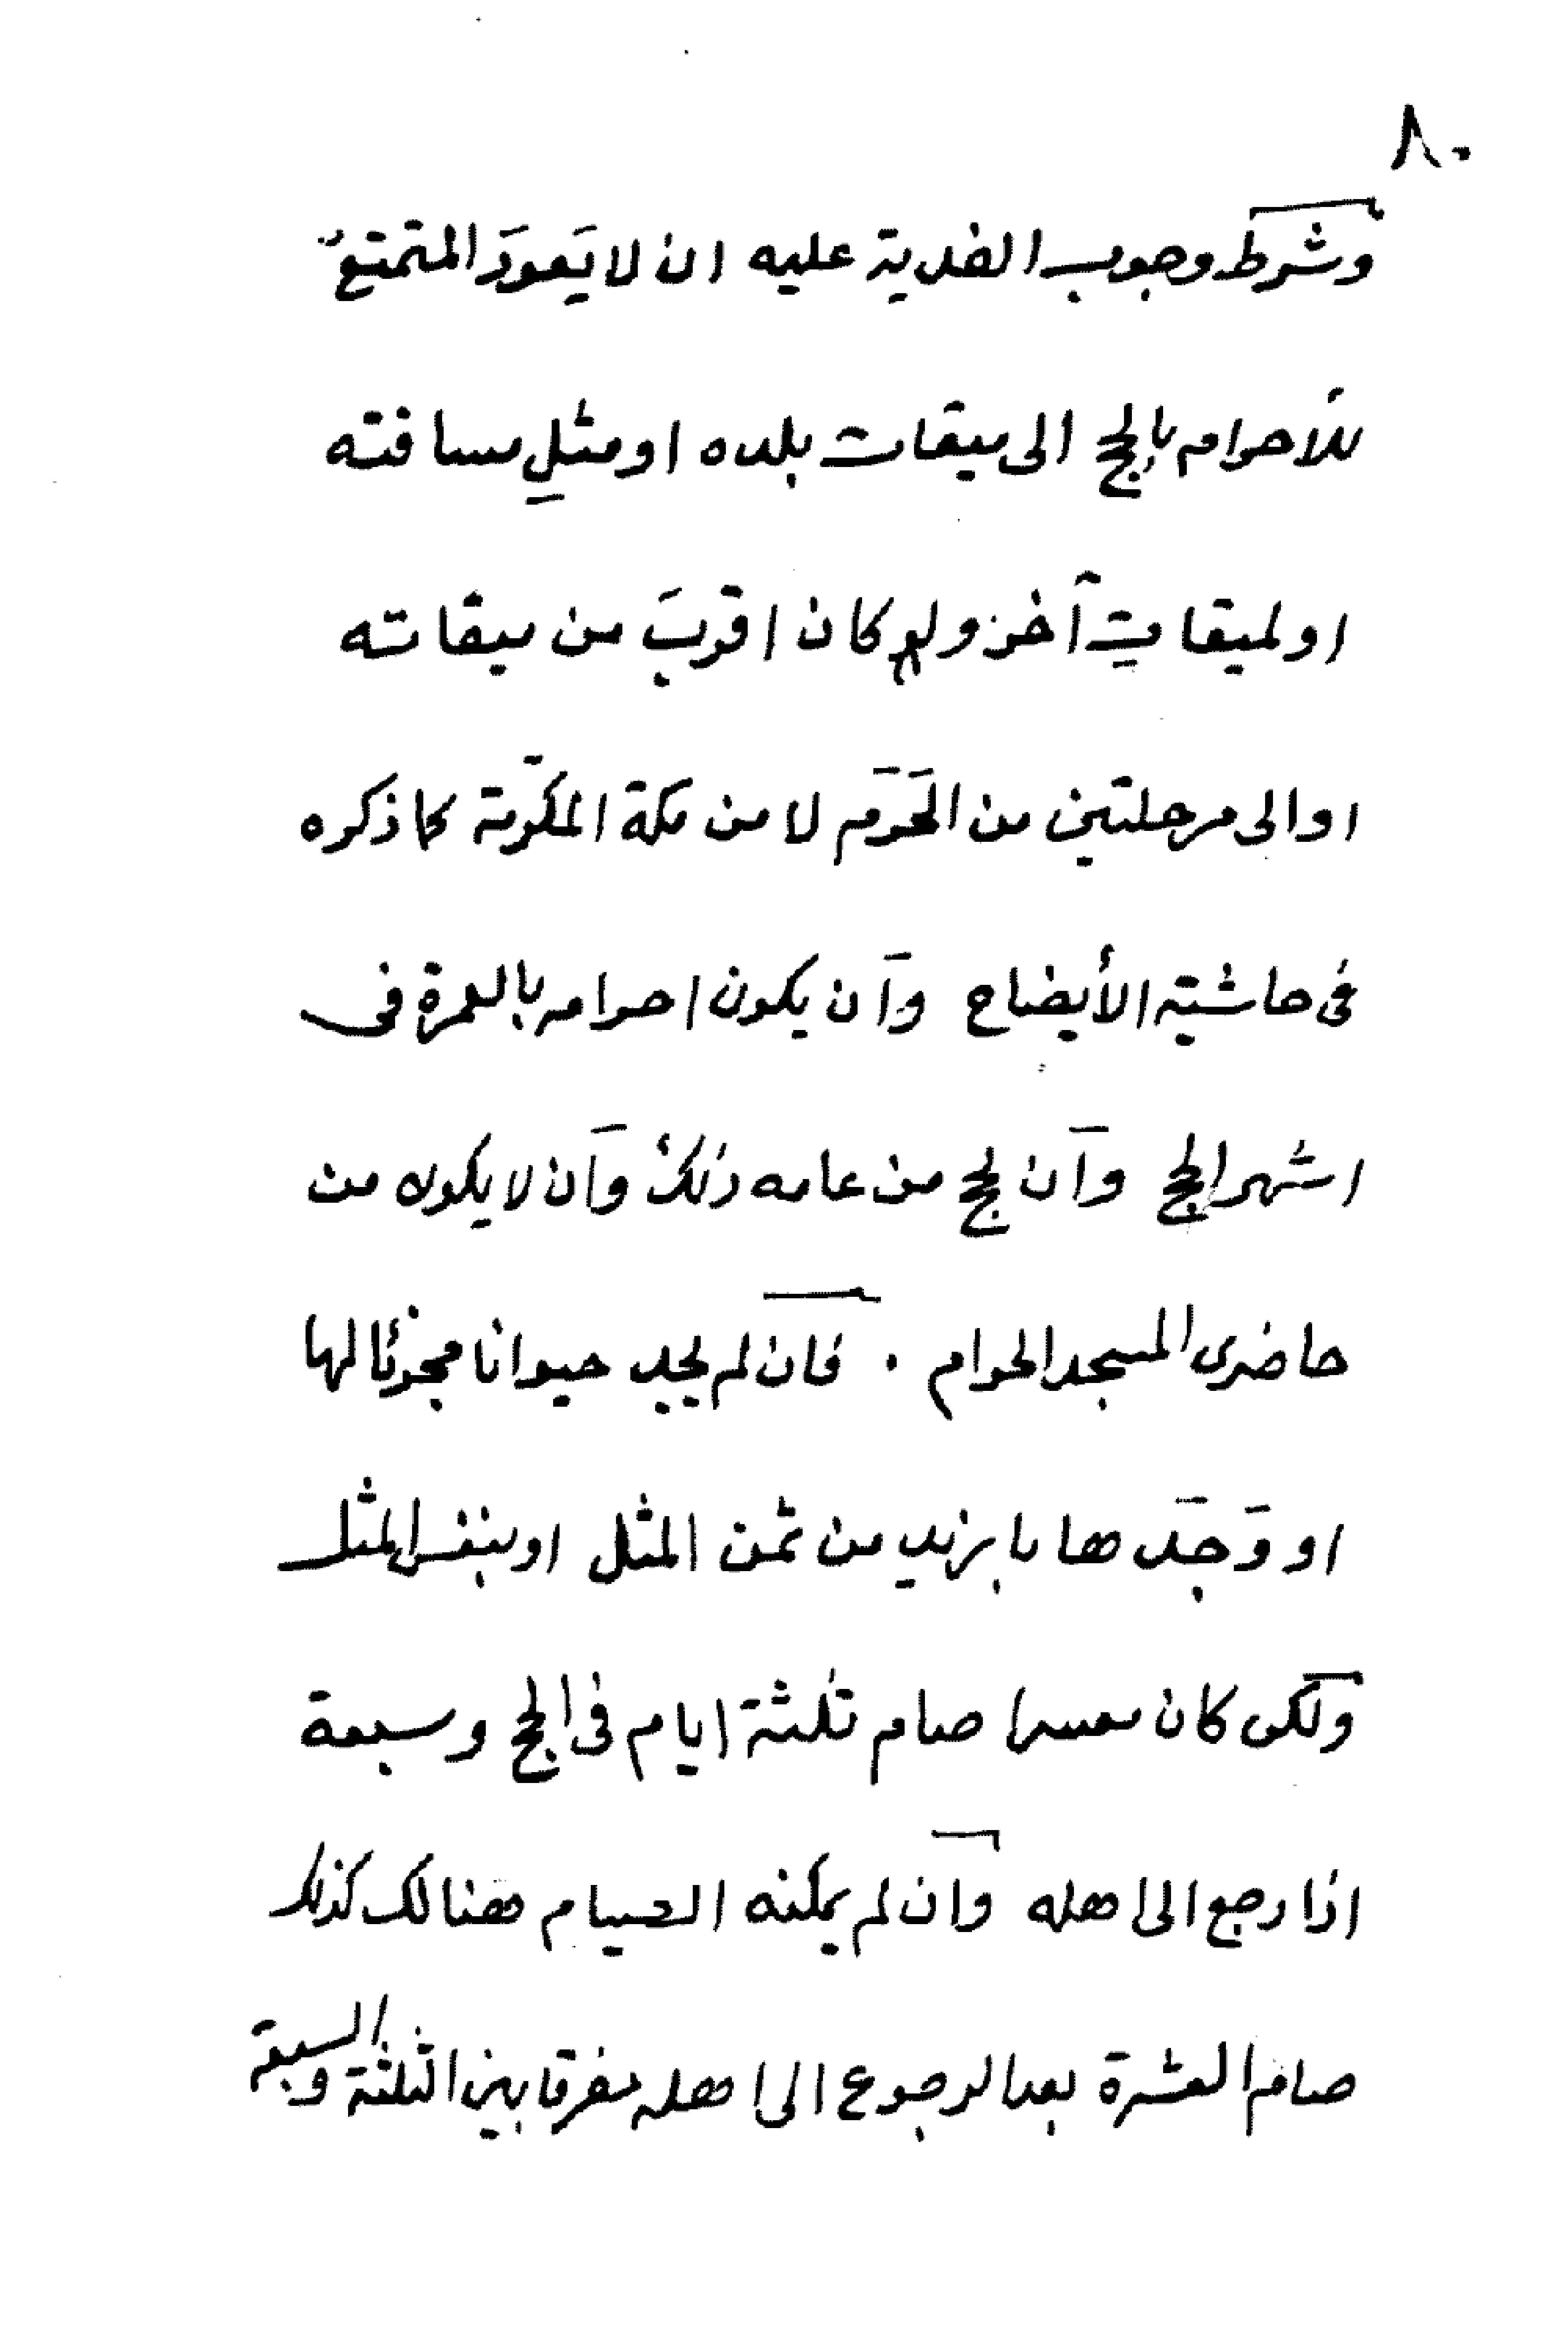 ٨٠
وشرط وجوب الفدية عليه ان لا يَعودَ المتمتعُ
للأحرام بالحج الى ميقات بلده او مثلِ مسافته
او لميقات آخر ولو كان اقربَ من ميقاته
او الى مرحلتين من الحَرَم لا من مكة المكرّمة كما ذكره
فى حاشية الأيضاح وآن يكون احرامه بالعمرة فى
اشهر الحج وآن يحج من عامه ذلك وآن لا يكون من
حاضرى المسجد الحرام . فان لم يجد حيوانا مجزئا لها
او وَجَدها بازيد من ثمن المثل او بنفس المثل
ولكن كان معسرا صام ثلثة ايام فى الحج وسبعة
اذا رجع الى اهله وان لم يمكنه الصيام هنالك كذلك
صام العشرة بعد الرجوع الى اهله مفرقا بين الثلثة والسبعة